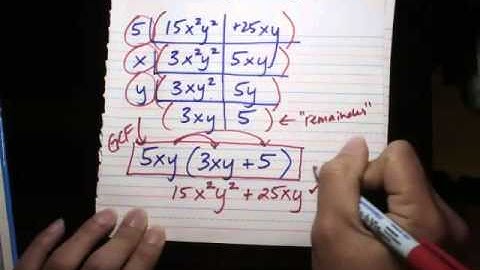 5 (15x²y² +25xy)
x (3x²y² 5xy)
y (3xy² 5y)
(3xy 5) ← "remainders"
GCF
5xy (3xy + 5)
15x²y² + 25xy ✓